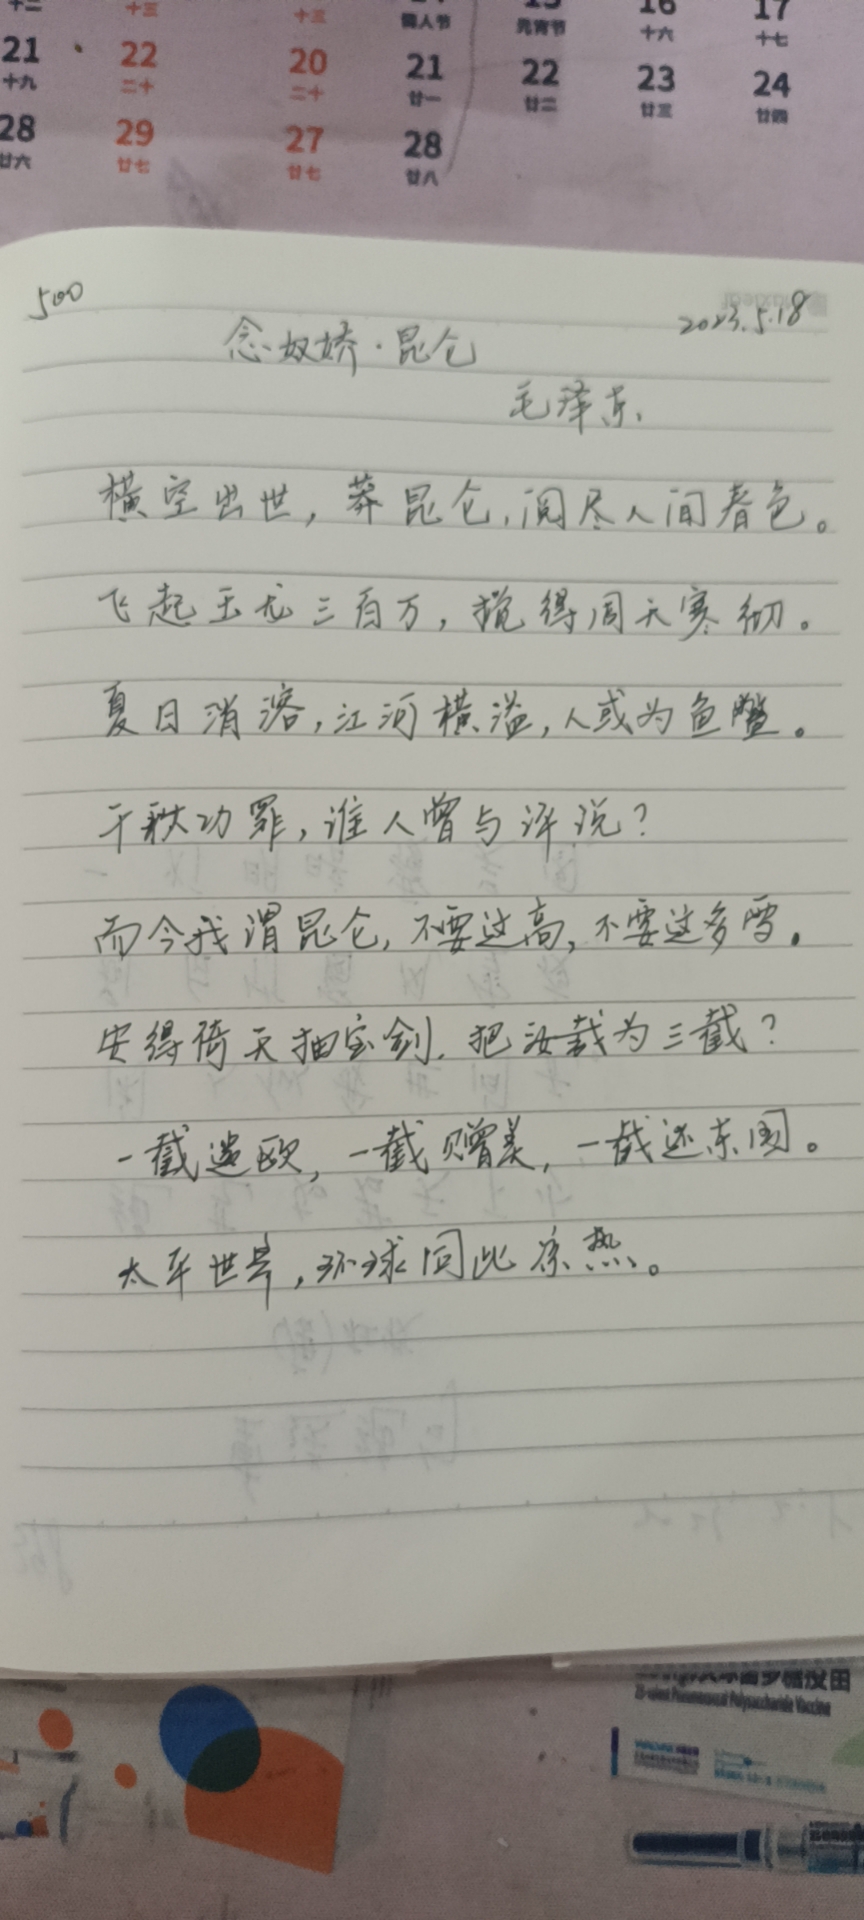 16 17
十二 十三 十三 情人节 元宵节 十六 十七
21 22 20 21 22 23 24
十九 二十 二十 廿一 廿二 廿三 廿四
28 29 27 28
廿六 廿七 廿七 廿八
500
2023.5.18
念奴娇·昆仑
毛泽东
横空出世,莽昆仑,阅尽人间春色。
飞起玉龙三百万,搅得周天寒彻。
夏日消溶,江河横溢,人或为鱼鳖。
千秋功罪,谁人曾与评说?
而今我谓昆仑,不要这高,不要这多雪。
安得倚天抽宝剑,把汝裁为三截?
一截遗欧,一截赠美,一截还东国。
太平世界,环球同此凉热。
23-valent Pneumococcal Polysaccharide Vaccine